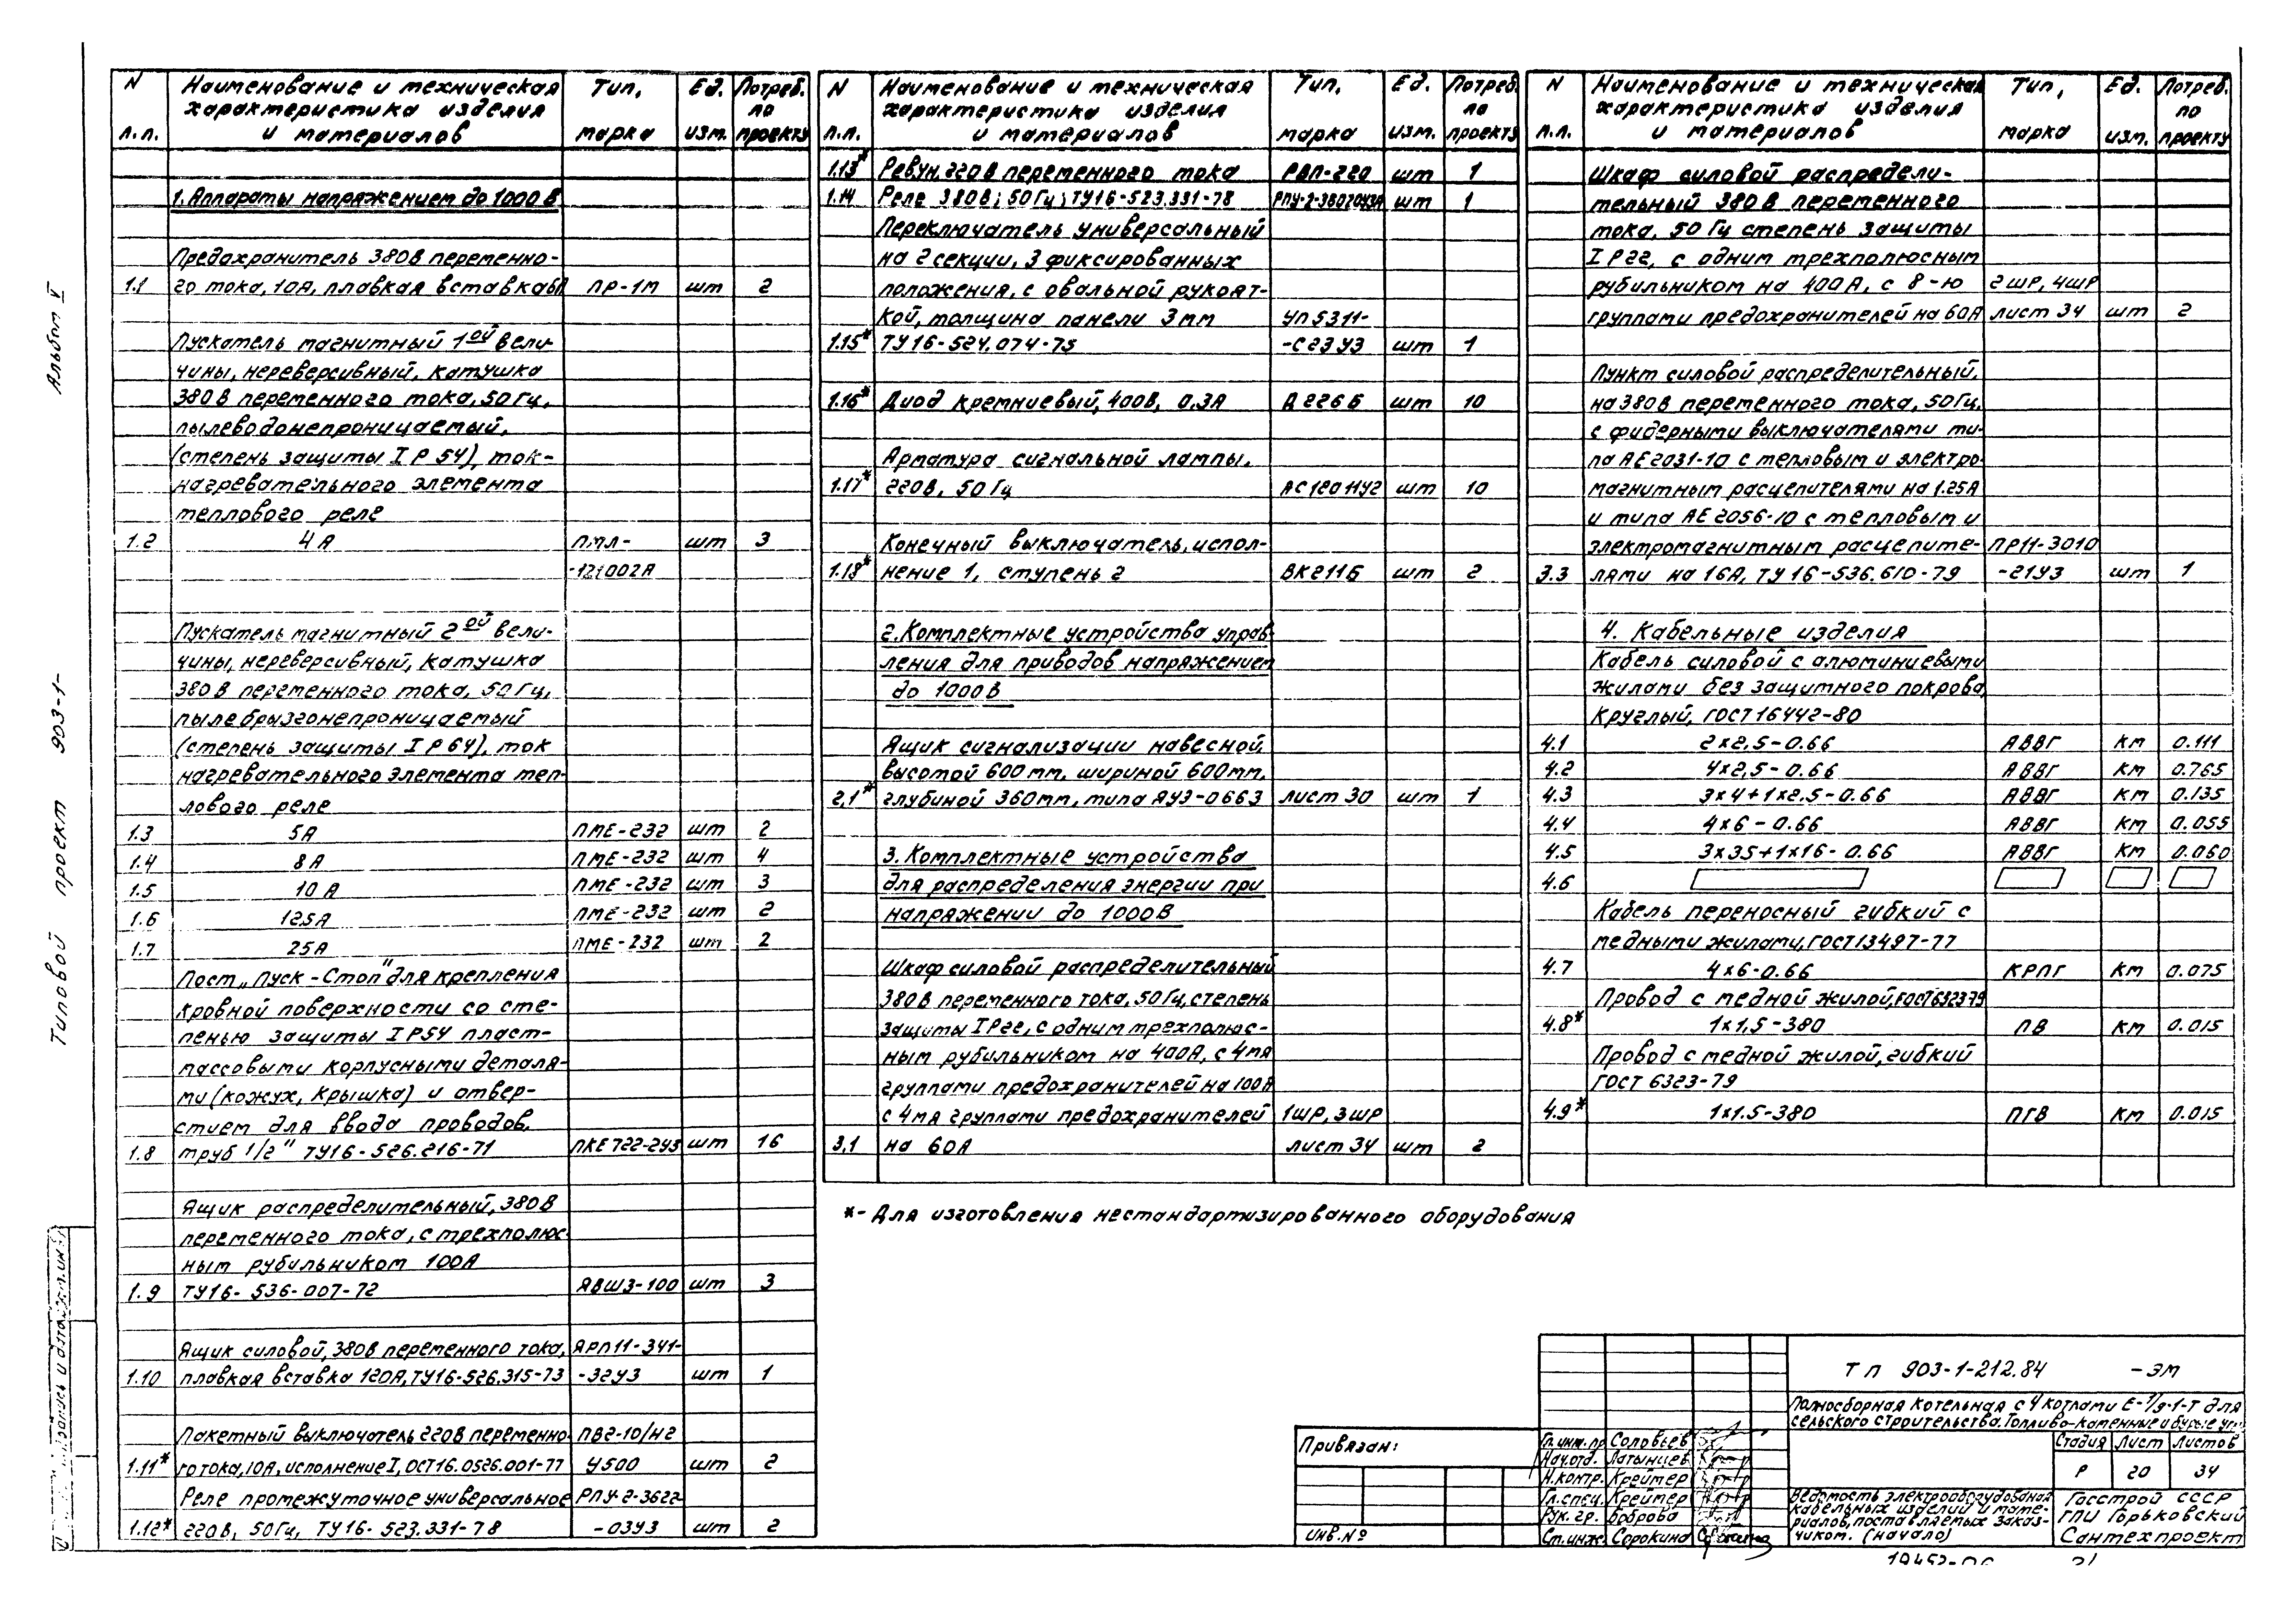 Альбом V
Типовой проект 903-1-
N п.п. Наименование и техническая характеристика изделия и материалов Тип, марка Ед. изм. Потреб. по проекту
1. Аппараты напряжением до 1000 В
Предохранитель 380В переменно-
1.1 го тока, 10А, плавкая вставка 6А ПР-1М шт 2
Пускатель магнитный 1ой вели-
чины, нереверсивный, катушка
380 В переменного тока, 50 Гц,
пылеводонепроницаемый,
(степень защиты IP54), ток-
нагревательного элемента
теплового реле
1.2 4А ПМЛ- шт 3
-121002А
Пускатель магнитный 2ой вели-
чины, нереверсивный, катушка
380 В переменного тока, 50 Гц,
пылебрызгонепроницаемый
(степень защиты IP64), ток
нагревательного элемента теп-
лового реле
1.3 5А ПМЕ-232 шт 2
1.4 8А ПМЕ-232 шт 4
1.5 10А ПМЕ-232 шт 3
1.6 12.5А ПМЕ-232 шт 2
1.7 25А ПМЕ-232 шт 2
Пост „Пуск-Стоп" для крепления
к ровной поверхности со сте-
пенью защиты IP54 пласт-
массовыми корпусными деталя-
ми (кожух, крышка) и отвер-
стием для ввода проводов,
1.8 труб 1/2" ТУ16-526.216-71 ПКЕ722-2У3 шт 16
Ящик распределительный, 380В
переменного тока, с трехполюс-
ным рубильником 100А
1.9 ТУ16-536-007-72 ЯВШ3-100 шт 3
Ящик силовой, 380В переменного тока, ЯРП11-341-
1.10 плавкая вставка 120А, ТУ16-526.315-73 -32У3 шт 1
Пакетный выключатель 220В переменно- ПВ2-10/Н2
1.11* го тока, 10А, исполнение I, ОСТ16.0526.001-77 У500 шт 2
Реле промежуточное универсальное РПУ-2-3622-
1.12* 220В, 50Гц, ТУ16-523.331-78 -03У3 шт 2
N п.п. Наименование и техническая характеристика изделия и материалов Тип, марка Ед. изм. Потреб. по проекту
1.13* Ревун 220В переменного тока РВП-220 шт 1
1.14 Реле 380В; 50Гц; ТУ16-523.331-78 РПУ-2-36020У3А шт 1
Переключатель универсальный
на 2 секции, 3 фиксированных
положения, с овальной рукоят-
кой, толщина панели 3мм УП5311-
1.15* ТУ16-524.074-75 -С23У3 шт 1
1.16* Диод кремниевый, 400В, 0.3А Д226Б шт 10
Арматура сигнальной лампы,
1.17* 220В, 50Гц АС12011У2 шт 10
Конечный выключатель, испол-
1.18* нение 1, ступень 2 ВК211Б шт 2
2. Комплектные устройства управ-
ления для приводов напряжением
до 1000 В
Ящик сигнализации навесной,
высотой 600мм, шириной 600мм,
2,1* глубиной 360мм, типа ЯУЭ-0663 лист 30 шт 1
3. Комплектные устройства
для распределения энергии при
напряжении до 1000 В
Шкаф силовой распределительный
380В переменного тока, 50Гц, степень
защиты IP22, с одним трехполюс-
ным рубильником на 400А, с 4мя
группами предохранителей на 100А
с 4мя группами предохранителей 1ШР, 3ШР
3,1 на 60А лист 34 шт 2
N п.п. Наименование и техническая характеристика изделия и материалов Тип, марка Ед. изм. Потреб. по проекту
Шкаф силовой распредели-
тельный 380В переменного
тока, 50 Гц степень защиты
IP22, с одним трехполюсным
рубильником на 400А, с 8-ю 2ШР, 4ШР
группами предохранителей на 60А лист 34 шт 2
Пункт силовой распределительный,
на 380В переменного тока, 50Гц,
с фидерными выключателями ти-
па АЕ2031-10 с тепловым и электро-
магнитным расцепителями на 1.25А
и типа АЕ2056-10 с тепловым и
электромагнитным расцепите- ПР11-3010
3.3 лями на 16А, ТУ16-536.610-79 -21У3 шт 1
4. Кабельные изделия
Кабель силовой с алюминиевыми
жилами без защитного покрова,
круглый, ГОСТ 16442-80
4.1 2×2,5-0.66 АВВГ км 0.111
4.2 4×2,5-0.66 АВВГ км 0.765
4.3 3×4+1×2.5-0.66 АВВГ км 0.135
4.4 4×6-0.66 АВВГ км 0.055
4.5 3×35+1×16-0.66 АВВГ км 0.060
4.6
Кабель переносный гибкий с
медными жилами, ГОСТ 13497-77
4.7 4×6-0.66 КРПГ км 0.075
Провод с медной жилой, ГОСТ 6323-79
4.8* 1×1,5-380 ПВ км 0.015
Провод с медной жилой, гибкий
ГОСТ 6323-79
4.9* 1×1.5-380 ПГВ км 0.015
*- Для изготовления нестандартизированного оборудования
Привязан:
Инв.№
Гл. инж. пр. Соловьев
Нач. отд. Латынцев
Н. контр. Крейтер
Гл. спец. Крейтер
Рук. гр. Боброва
Ст. инж. Сорокина
ТП 903-1-212.84 -ЭМ
Полносборная котельная с 4 котлами Е-1/9-1-Т для
сельского строительства. Топливо-каменные и бурые угли
Стадия Лист Листов
Р 20 34
Ведомость электрооборудования,
кабельных изделий и мате-
риалов, поставляемых заказ-
чиком. (начало)
Госстрой СССР
ГПИ Горьковский
Сантехпроект
19452-06 21